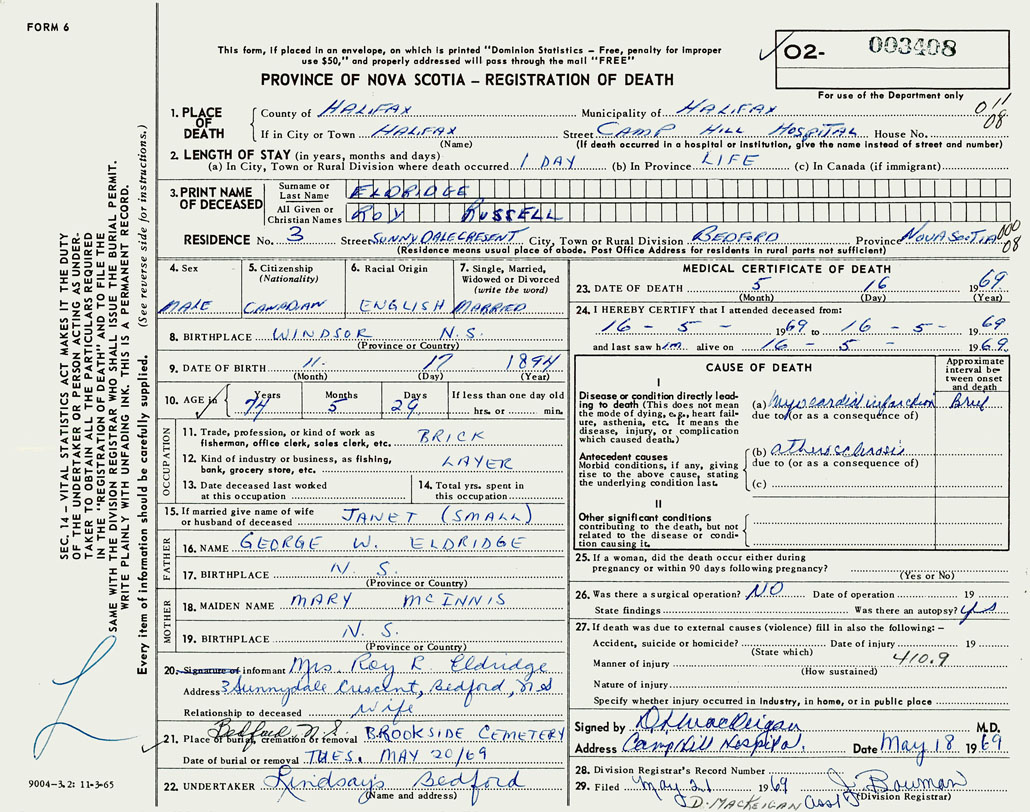 FORM 6
This form, if placed in an envelope, on which is printed "Dominion Statistics – Free, penalty for improper
use $50," and properly addressed will pass through the mail "FREE"
PROVINCE OF NOVA SCOTIA – REGISTRATION OF DEATH
02- 003408
For use of the Department only
011
08
1. PLACE OF DEATH
County of HALIFAX Municipality of HALIFAX
If in City or Town HALIFAX Street CAMP HILL HOSPITAL House No.
(Name) (If death occurred in a hospital or institution, give the name instead of street and number)
2. LENGTH OF STAY (in years, months and days)
(a) In City, Town or Rural Division where death occurred 1 DAY (b) In Province LIFE (c) In Canada (if immigrant)
3. PRINT NAME OF DECEASED
Surname or Last Name ELDRIDGE
All Given or Christian Names ROY RUSSELL
RESIDENCE No. 3 Street SUNNYDALE CRESENT City, Town or Rural Division BEDFORD Province NOVA SCOTIA 000
08
(Residence means usual place of abode. Post Office Address for residents in rural parts not sufficient)
4. Sex 5. Citizenship (Nationality) 6. Racial Origin 7. Single, Married, Widowed or Divorced (write the word)
MALE CANADIAN ENGLISH MARRIED
8. BIRTHPLACE WINDSOR N.S.
(Province or Country)
9. DATE OF BIRTH 11 17 1894
(Month) (Day) (Year)
10. AGE in Years Months Days If less than one day old
74 5 29 hrs. or min.
OCCUPATION
11. Trade, profession, or kind of work as fisherman, office clerk, sales clerk, etc. BRICK
12. Kind of industry or business, as fishing, bank, grocery store, etc. LAYER
13. Date deceased last worked at this occupation
14. Total yrs. spent in this occupation
15. If married give name of wife or husband of deceased JANET (SMALL)
FATHER
16. NAME GEORGE W. ELDRIDGE
17. BIRTHPLACE N. S.
(Province or Country)
MOTHER
18. MAIDEN NAME MARY MCINNIS
19. BIRTHPLACE N. S.
(Province or Country)
20. Signature of informant Mrs. Roy R. Eldridge
Address 3 Sunnydale Crescent, Bedford, N S
Relationship to deceased Wife
Bedford N.S.
21. Place of burial, cremation or removal BROOKSIDE CEMETERY
Date of burial or removal TUES. MAY 20/69
22. UNDERTAKER Lindsay's Bedford
(Name and address)
MEDICAL CERTIFICATE OF DEATH
23. DATE OF DEATH 5 16 1969
(Month) (Day) (Year)
24. I HEREBY CERTIFY that I attended deceased from:
16 - 5 - 1969 to 16 - 5 - 1969
and last saw him alive on 16 - 5 - 1969.
CAUSE OF DEATH
Approximate interval between onset and death
I
Disease or condition directly leading to death (This does not mean the mode of dying, e.g., heart failure, asthenia, etc. It means the disease, injury, or complication which caused death.)
(a) Myocardial infarction Brief
due to (or as a consequence of)
Antecedent causes
Morbid conditions, if any, giving rise to the above cause, stating the underlying condition last.
(b) atherosclerosis
due to (or as a consequence of)
(c)
II
Other significant conditions
contributing to the death, but not related to the disease or condition causing it.
25. If a woman, did the death occur either during
pregnancy or within 90 days following pregnancy?
(Yes or No)
26. Was there a surgical operation? NO Date of operation 19
State findings Was there an autopsy? yes
27. If death was due to external causes (violence) fill in also the following:–
Accident, suicide or homicide? Date of injury 19
(State which)
Manner of injury 410.9
(How sustained)
Nature of injury
Specify whether injury occurred in Industry, in home, or in public place
Signed by D. MacKeigan M.D.
Address Camp Hill Hospital. Date May 18 1969
28. Division Registrar's Record Number
29. Filed May 21 1969 J. Bowman
D. MACKEIGAN Asst Division Registrar
SEC. 14 – VITAL STATISTICS ACT MAKES IT THE DUTY
OF THE UNDERTAKER OR PERSON ACTING AS UNDER-
TAKER TO OBTAIN ALL THE PARTICULARS REQUIRED
IN THE "REGISTRATION OF DEATH" AND TO FILE THE
SAME WITH THE DIVISION REGISTRAR WHO SHALL ISSUE THE BURIAL PERMIT.
WRITE PLAINLY WITH UNFADING INK. THIS IS A PERMANENT RECORD.
Every item of information should be carefully supplied. (See reverse side for instructions.)
9004-3.2: 11-3-65